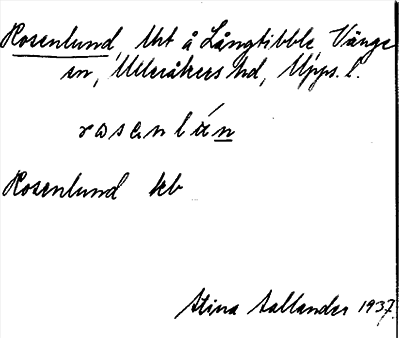 Rosenlund, lht å Långtibble, Vänge
sn, Ulleråkers hd, Upps. l.
rosenlún
Rosenlund keb
Stina Sallander 1937.